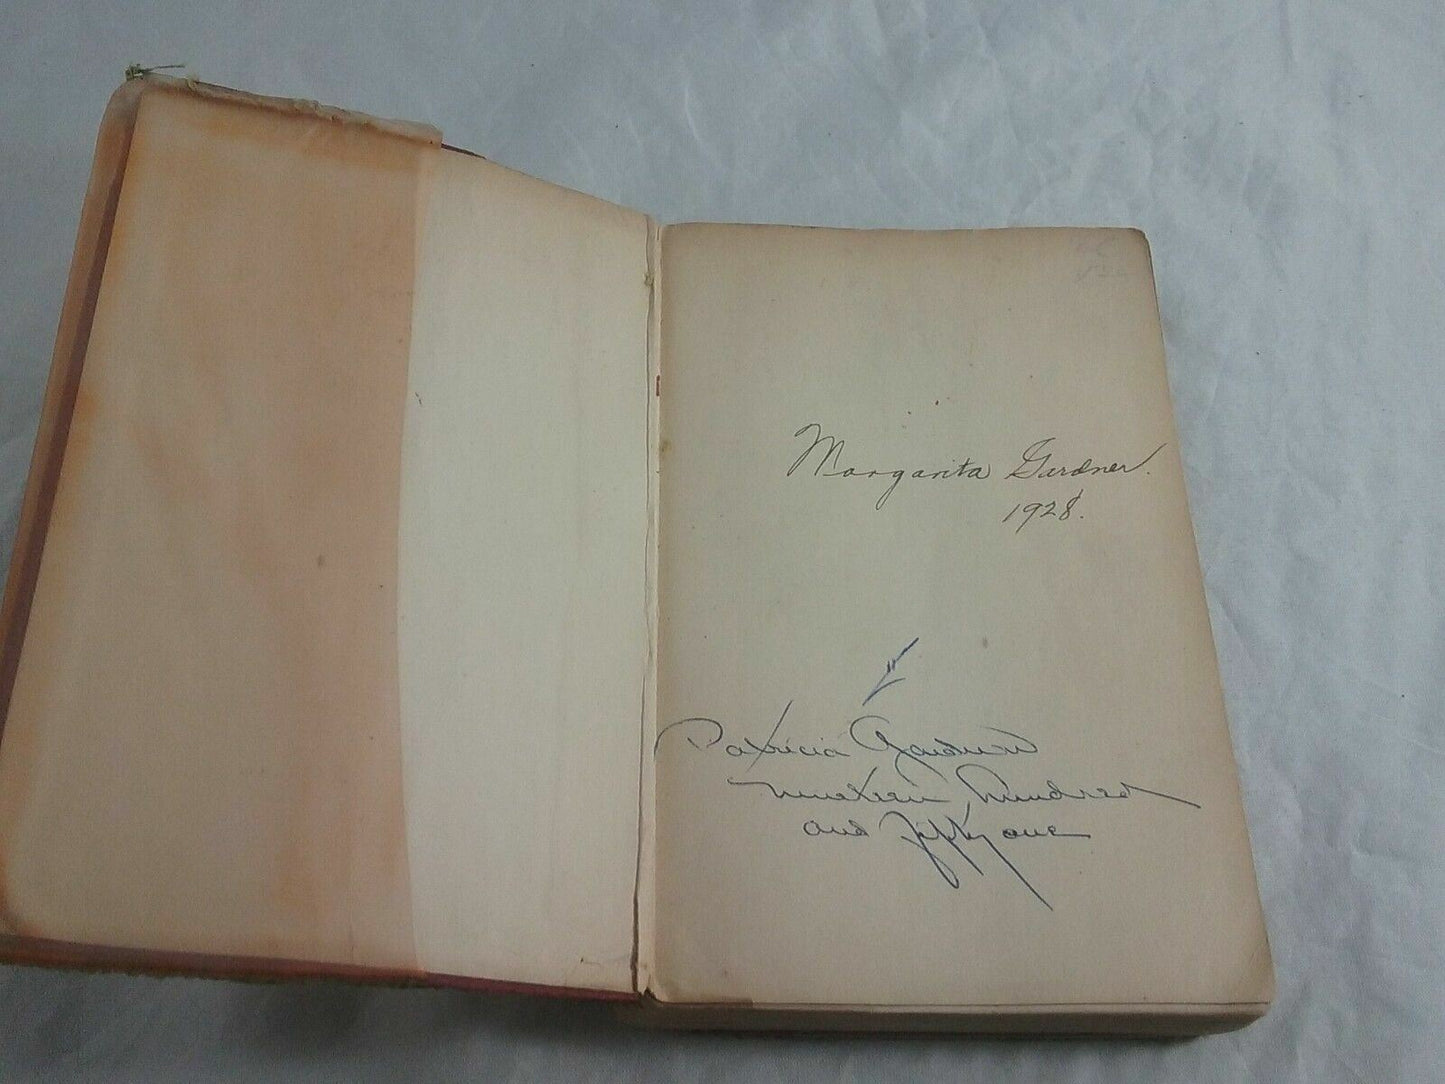 Margarita Gardner.
1928.
Patricia Gardner
nineteen hundred
and fifty one